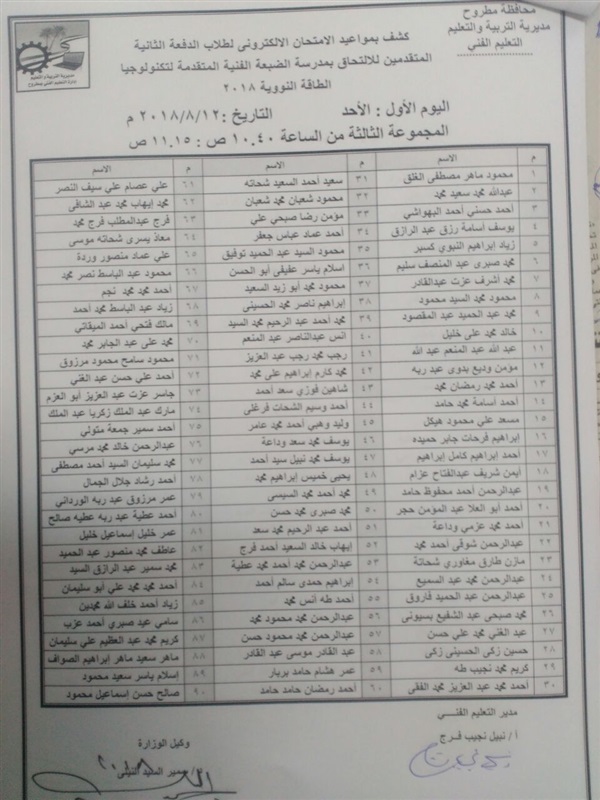 محافظة مطروح
مديرية التربية والتعليم
التعليم الفني
كشف بمواعيد الامتحان الالكترونى لطلاب الدفعة الثانية
المتقدمين للالتحاق بمدرسة الضبعة الفنية المتقدمة لتكنولوجيا
الطاقة النووية ٢٠١٨
اليوم الأول : الأحد التاريخ : ٢٠١٨/٨/١٢ م
المجموعة الثالثة من الساعة ١٠.٤٠ ص : ١١.١٥ ص
م الاسم م الاسم م الاسم
١ محمود ماهر مصطفى الغلق ٣١ سعيد أحمد السعيد شحاته ٦١ علي عصام علي سيف النصر
٢ عبدالله محمد سعيد محمد ٣٢ محمود شعبان محمد شعبان ٦٢ محمد إيهاب محمد عبد الشافى
٣ أحمد حسني أحمد البهواشي ٣٣ مؤمن رضا صبحي علي ٦٣ فرج عبدالمطلب فرج محمد
٤ يوسف أسامة رزق عبد الرازق ٣٤ أحمد عماد عباس جعفر ٦٤ معاذ يسرى شحاته موسى
٥ زياد إبراهيم النبوي كسبر ٣٥ محمود السيد عبد الحميد توفيق ٦٥ علي عماد منصور وردة
٦ محمد صبرى عبد المنصف سليم ٣٦ اسلام ياسر عفيفى أبو الحسن ٦٦ محمود عبد الباسط نصر محمد
٧ محمد أشرف عزت عبدالقادر ٣٧ محمود محمد أبو زيد السعيد ٦٧ أحمد محمد محمد نجم
٨ محمود محمد السيد محمود ٣٨ إبراهيم ناصر محمد الحسيني ٦٨ زياد عبد الباسط محمد أحمد
٩ محمد عبد الحميد عبد المقصود ٣٩ محمد أحمد عبد الرحيم محمد السيد ٦٩ مالك فتحي أحمد الميقاتي
١٠ خالد محمد علي خليل ٤٠ انس عبدالناصر عبد المنعم ٧٠ محمد علي عبد الجابر محمد
١١ عبد الله عبد المنعم عبد الله ٤١ رجب محمد رجب عبد العزيز ٧١ محمود سامح محمود مرزوق
١٢ مؤمن وديع بدوى عبد ربه ٤٢ محمد كارم إبراهيم علي محمد ٧٢ أحمد علي حسن عبد الغني
١٣ أحمد محمد رمضان محمد ٤٣ شاهين فوزي سعد أحمد ٧٣ جاسر عزت عبد العزيز أبو العزم
١٤ أحمد أسامة محمد حامد ٤٤ أحمد وسيم الشحات فرغلى ٧٤ مارك عبد الملك زكريا عبد الملك
١٥ مسعد علي محمود هيكل ٤٥ وليد وهبي أحمد محمد عامر ٧٥ أحمد سمير جمعة متولي
١٦ إبراهيم فرحات جابر حميده ٤٦ يوسف محمد سعد وداعة ٧٦ عبدالرحمن خالد محمد مرسي
١٧ أحمد إبراهيم كامل إبراهيم ٤٧ يوسف محمد نبيل سيد أحمد ٧٧ محمد سليمان السيد أحمد مصطفى
١٨ أيمن شريف عبدالفتاح عزام ٤٨ يحيى خميس إبراهيم محمد ٧٨ أحمد رشاد جلال الجمال
١٩ عبدالرحمن أحمد محفوظ حامد ٤٩ محمد أحمد محمد السيسى ٧٩ عمر مرزوق عبد ربه الورداني
٢٠ أحمد أبو العلا عبد المؤمن حجر ٥٠ محمد صبرى محمد حسن ٨٠ أحمد عطية عبد ربه عطيه صالح
٢١ أحمد محمد عزمي وداعة ٥١ أحمد عبد الرحيم محمد سعد ٨١ عمر خليل إسماعيل خليل
٢٢ عبدالرحمن شوقى أحمد محمد ٥٢ إيهاب خالد السعيد أحمد فرج ٨٢ عاطف محمد منصور عبد الحميد
٢٣ مازن طارق مغاوري شحاتة ٥٣ عبدالرحمن أحمد محمد عطية ٨٣ محمد سمير عبد الرازق السيد
٢٤ عبدالرحمن محمد عبد السميع ٥٤ إبراهيم حمدى سالم أحمد ٨٤ أحمد محمد محمد علي أبو سليمان
٢٥ عبدالرحمن عبد الحميد فاروق ٥٥ أحمد طه أنس محمد ٨٥ زياد أحمد خلف الله محمدين
٢٦ محمد صبحى عبد الشفيع بسيونى ٥٦ عبدالرحمن محمد محمود محمد ٨٦ سامي عيد صبري أحمد عزب
٢٧ عبد الغني محمد علي حسن ٥٧ عبدالرحمن محمد محمود حسن ٨٧ كريم محمد عبد العظيم علي سليمان
٢٨ حسين زكى الحسينى زكى ٥٨ عبد القادر موسى عبد القادر ٨٨ ماهر سعيد ماهر إبراهيم الصواف
٢٩ كريم محمد نجيب طه ٥٩ عمر هشام حامد بربار ٨٩ إسلام ياسر سعيد محمود
٣٠ أحمد محمد عبد العزيز محمد الفقى ٦٠ أحمد رمضان حامد حامد ٩٠ صالح حسن إسماعيل محمود
مدير التعليم الفنـــي
أ / نبيل نجيب فـرج
وكيل الوزارة
سمير السعيد النيلى